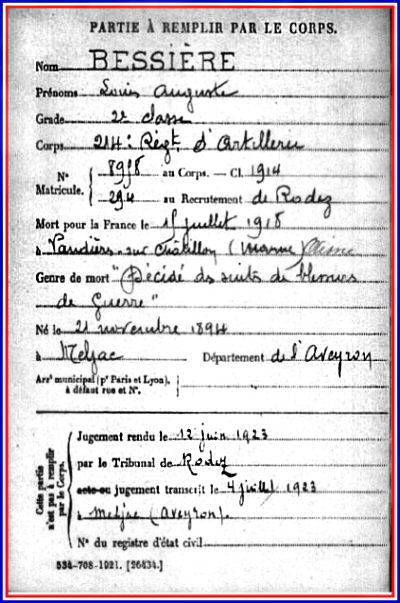 PARTIE À REMPLIR PAR LE CORPS.
Nom BESSIÈRE
Prénoms Louis Auguste
Grade 2e classe
Corps 214e Régt d'Artillerie
N° Matricule. { 8938 au Corps. — Cl. 1914
294 au Recrutement de Rodez
Mort pour la France le 15 juillet 1918
à Vandières sur Châtillon (Marne)
Genre de mort "Décédé des suites de blessures
de Guerre"
Né le 21 novembre 1894
à Meljac Département de l'Aveyron
Arrt municipal (pr Paris et Lyon),
à défaut rue et N°.
Cette partie n'est pas à remplir par le Corps.
Jugement rendu le 12 juin 1923
par le Tribunal de Rodez
acte ou jugement transcrit le 4 juillet 1923
à Meljac (Aveyron).
N° du registre d'état civil
534-708-1921. [26434.]